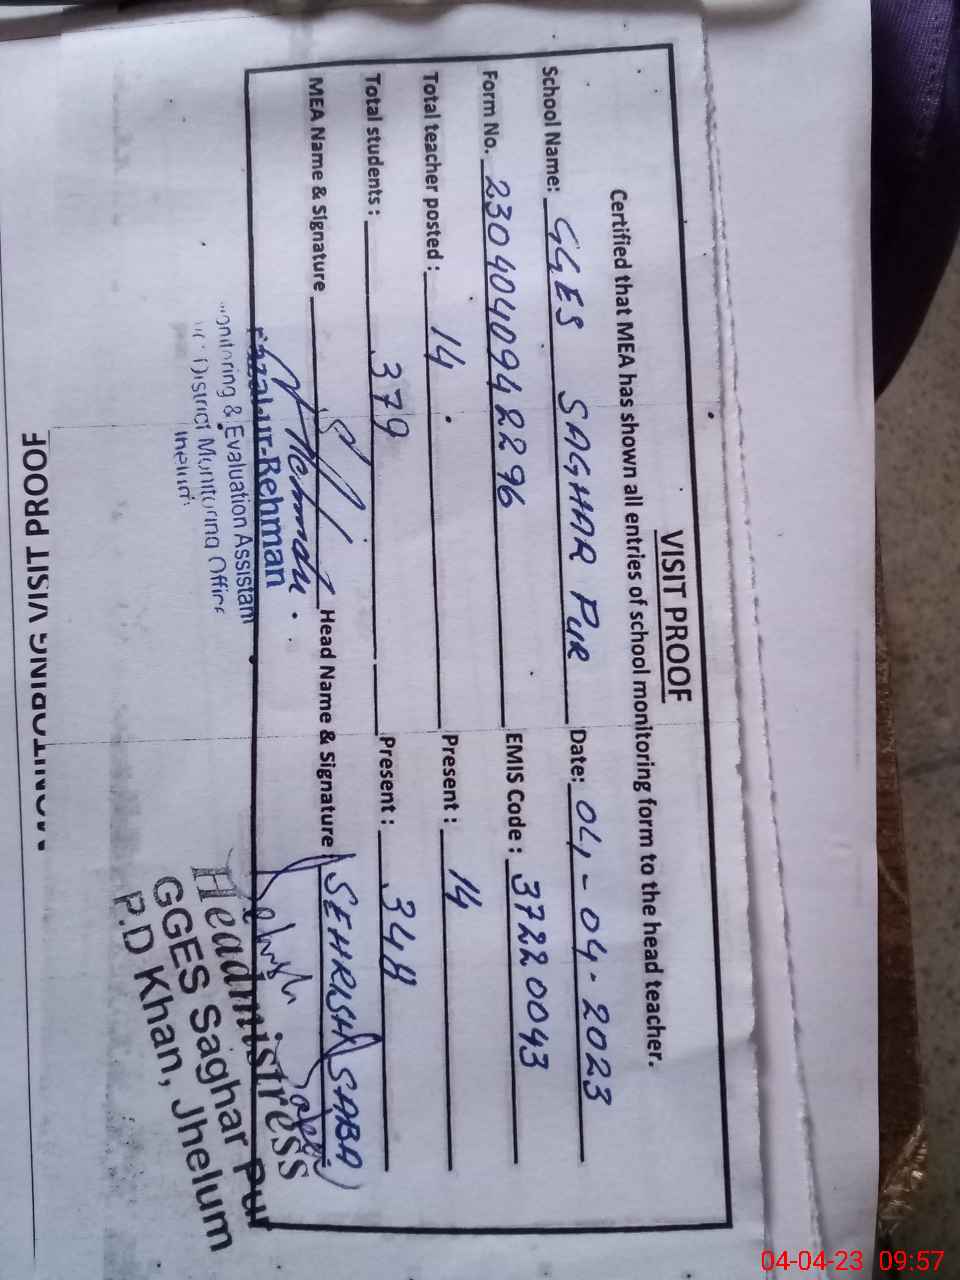 VISIT PROOF
Certified that MEA has shown all entries of school monitoring form to the head teacher.
School Name: GGES SAGHAR PUR Date: 04-04-2023
Form No. 2304040942296 EMIS Code: 37220043
Total teacher posted: 14 Present: 14
Total students: 379 Present: 348
MEA Name & Signature Head Name & Signature (SEHRISH SABA)
Fazal-ur-Rehman
Monitoring & Evaluation Assistant
District Monitoring Office
Jhelum
Headmistress
GGES Saghar Pur
P.D Khan, Jhelum
MONITORING VISIT PROOF
04-04-23 09:57